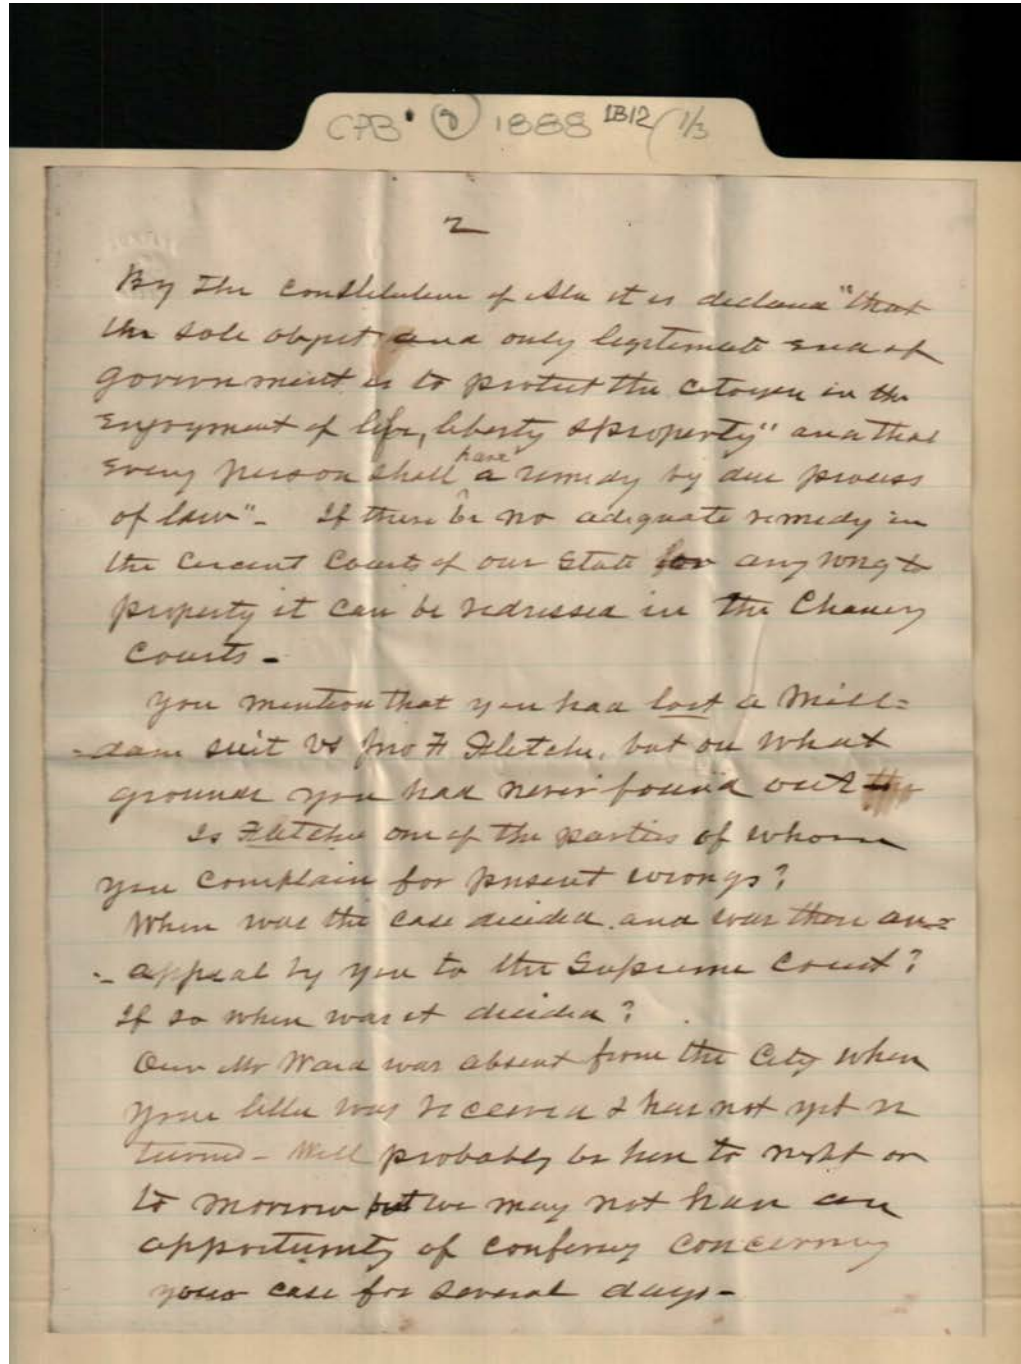 CPB 8 1888 1B12 (1/3
2
By the Constitution of Ala it is declared "that
the sole object and only legitimate end of
government is to protect the citizen in the
enjoyment of life, liberty & property" and that
every person shall have a remedy by due process
of law"- If there be no adequate remedy in
the Circuit Courts of our State for any wrong to
property it can be redressed in the Chancery
Courts -
You mention that you had lost a Mill=
=dam suit vs Jno F Fletcher, but on what
grounds you had never found out
Is Fletcher one of the parties of whom
you complain for present wrongs?
When was the case decided, and was there an=
- appeal by you to the Supreme Court?
If so when was it decided?
Our Mr Ward was absent from the City when
your letter was received & has not yet re
turned - Will probably be here to night or
to morrow but we may not have an
opportunity of conferring concerning
your case for several days -